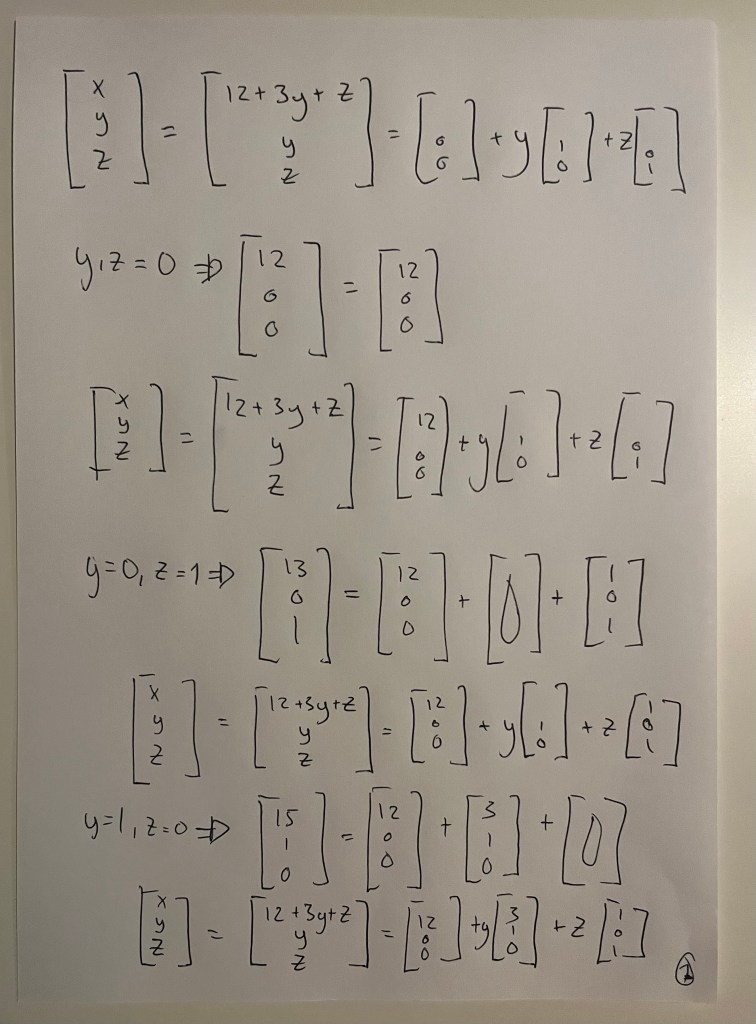 [x y z] = [12+3y+z y z] = [0 0] + y[1 0] + z[0 1]
y,z=0 ⇒ [12 0 0] = [12 0 0]
[x y z] = [12+3y+z y z] = [12 0 0] + y[1 0] + z[0 1]
y=0, z=1 ⇒ [13 0 1] = [12 0 0] + [0] + [1 0 1]
[x y z] = [12+3y+z y z] = [12 0 0] + y[1 0] + z[1 0 1]
y=1, z=0 ⇒ [15 1 0] = [12 0 0] + [3 1 0] + [0]
[x y z] = [12+3y+z y z] = [12 0 0] + y[3 1 0] + z[1 0 1]